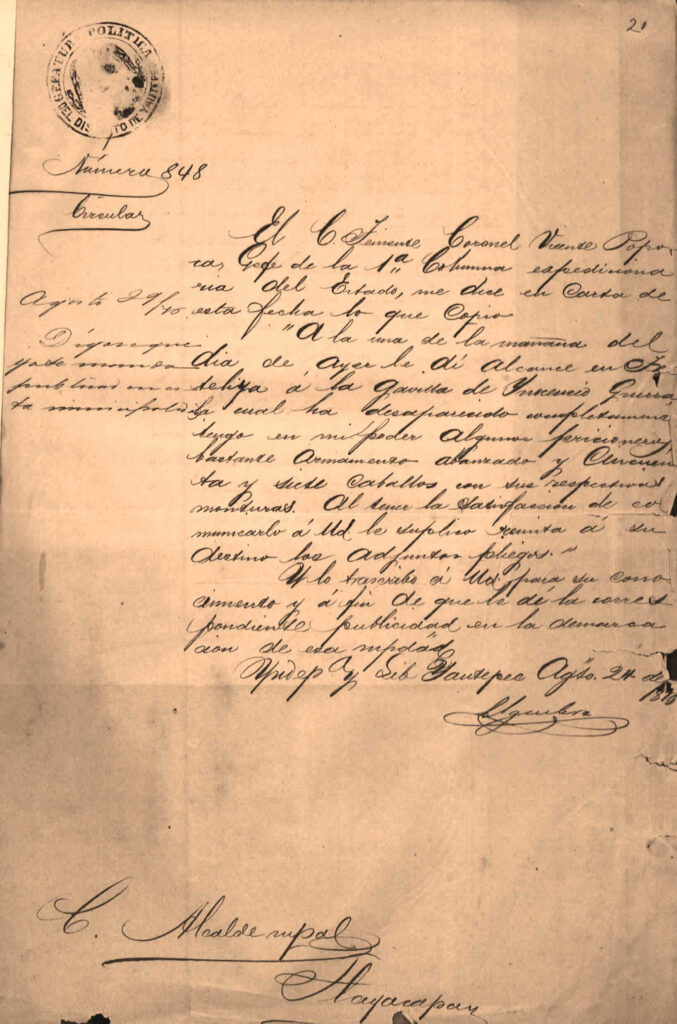 21
JEFATURA POLITICA
DEL DISTRITO DE YAUTEPEC
Número 848
Circular
El C. Teniente Coronel Vicente Popo
ca, Gefe de la 1ª Columna espedisiona
ria del Estado, me dice en Carta de
esta fecha lo que Copio
"A la una de la mañana del
dia de ayer le dí alcance en
á la Gavilla de Ynocencio Guerra
la cual ha desaparecido completamente
tengo en mi poder algunos pricioneros,
bastante armamento abanzado y Cincuen
ta y siete Caballos con sus respectivas
monturas. Al tener la satisfaccion de co
municarlo á Ud. le suplico remita á su
destino los adjuntos pliegos."
Y lo trascribo á Ud. para su cono
cimiento y á fin de que le dé la corres
pondiente publicidad en la demarca
cion de esa mpdad
Yndep. y Lib. Yautepec Agto. 24 de
Agosto 29/
Digase que
ya se manda
publicar en es
ta municipalid
C. Alcalde mpal
Tlayacapan